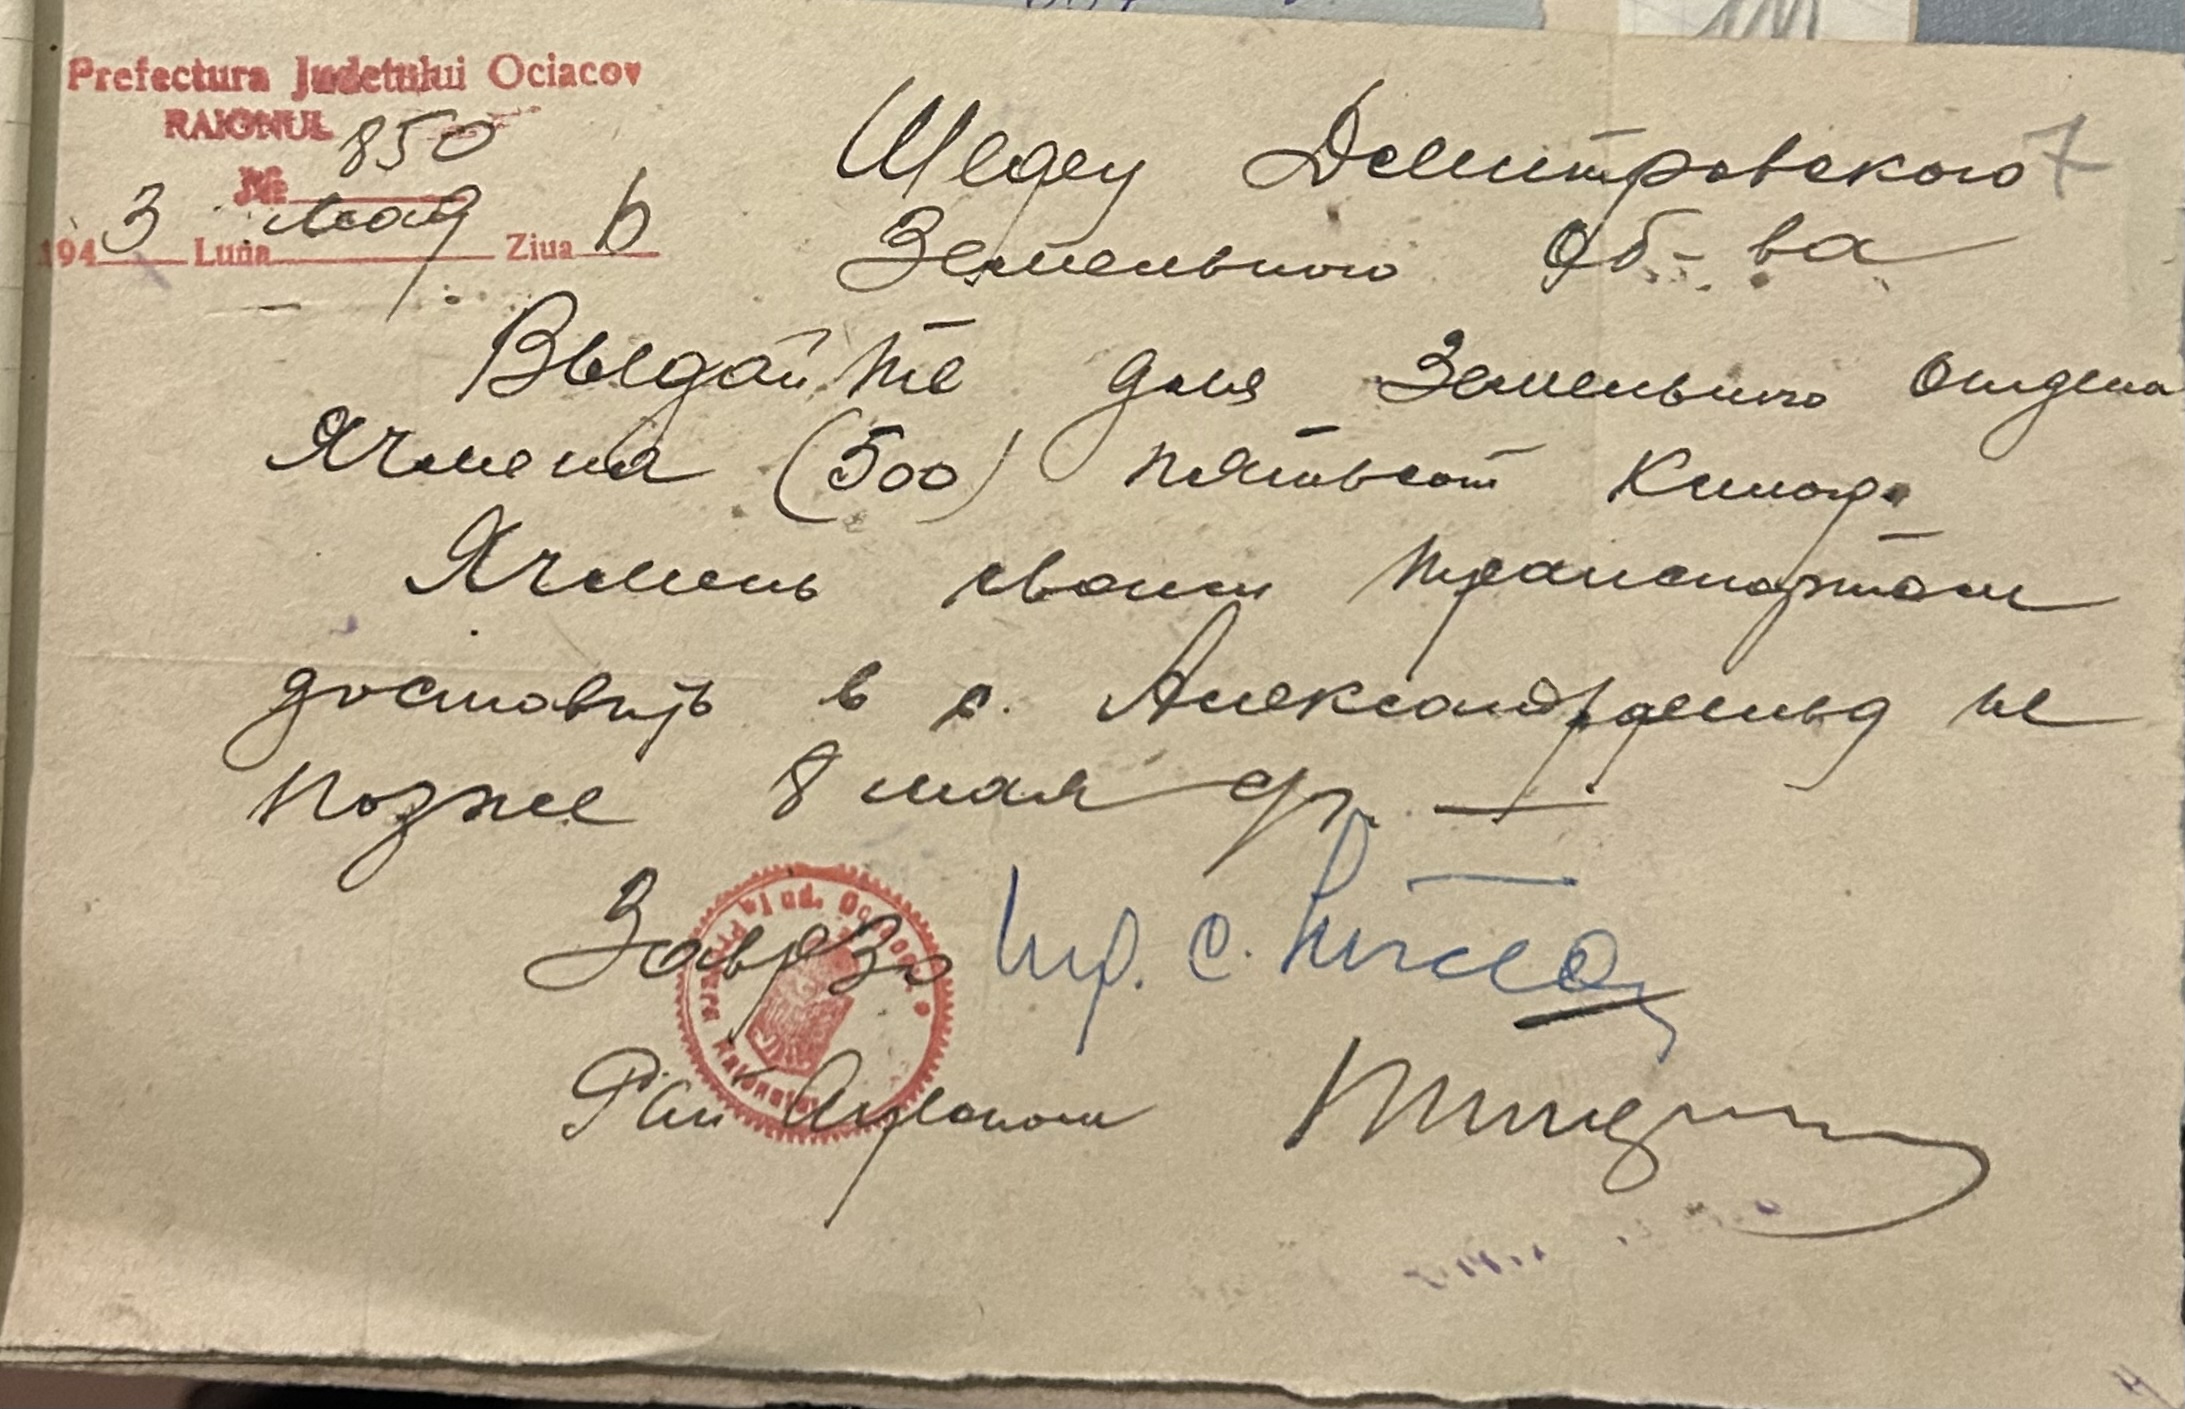 Prefectura Judetului Ociacov
RAIONUL
№ 850
1943 Luna мая Ziua 6
7
Шефу Дмитровского
Земельного об-ва
Выдайте для Земельного отдела
Ячменя (500) пятьсот килогр.
Ячмень своим транспортом
доставить в с. Александрфельд не
позже 8 мая с/г.
Заврзо Инр. С.
Рай Агроном